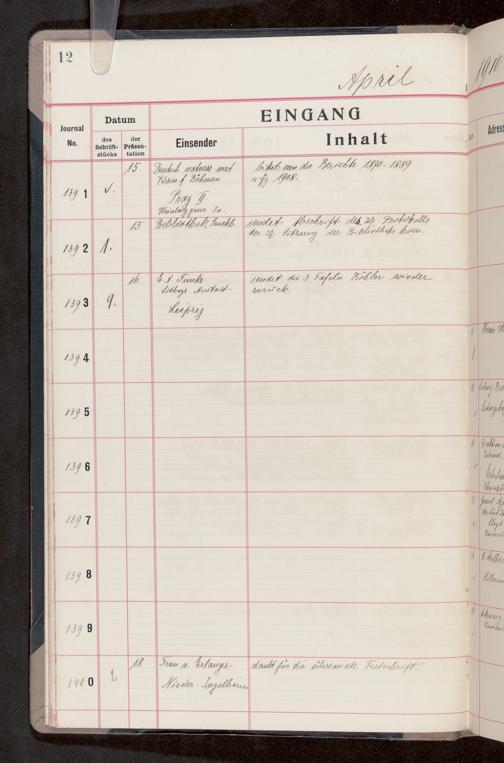 12
April
1910
Datum
EINGANG
Journal No.
des Schrift-stücks
der Präsen-tation
Einsender
Inhalt
Adress
139 1
15.
Deutsch naturw. med
Verein f. Böhmen
Prag II
bittet um die Berichte 1870-1889
1908.
139 2
1.
15
Bibliothek Senckb.
sendet Abschrift des 24 Protokolls
der 24 Sitzung der Bibliotheks kom.
139 3
9.
16
E. A. Funke
Lithogr Anstalt
Leipzig
sendet die 3 Tafeln Köbler wieder
zurück.
139 4
139 5
139 6
139 7
139 8
139 9
140 0
2
18
Frau v. Erlanger
Nieder-Ingelheim
dankt für die übersandte Festschrift